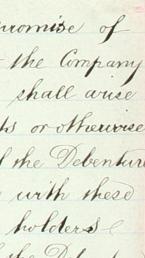 promise of
the Company
shall arise
ts or otherwise
the Debentur
with these
holders